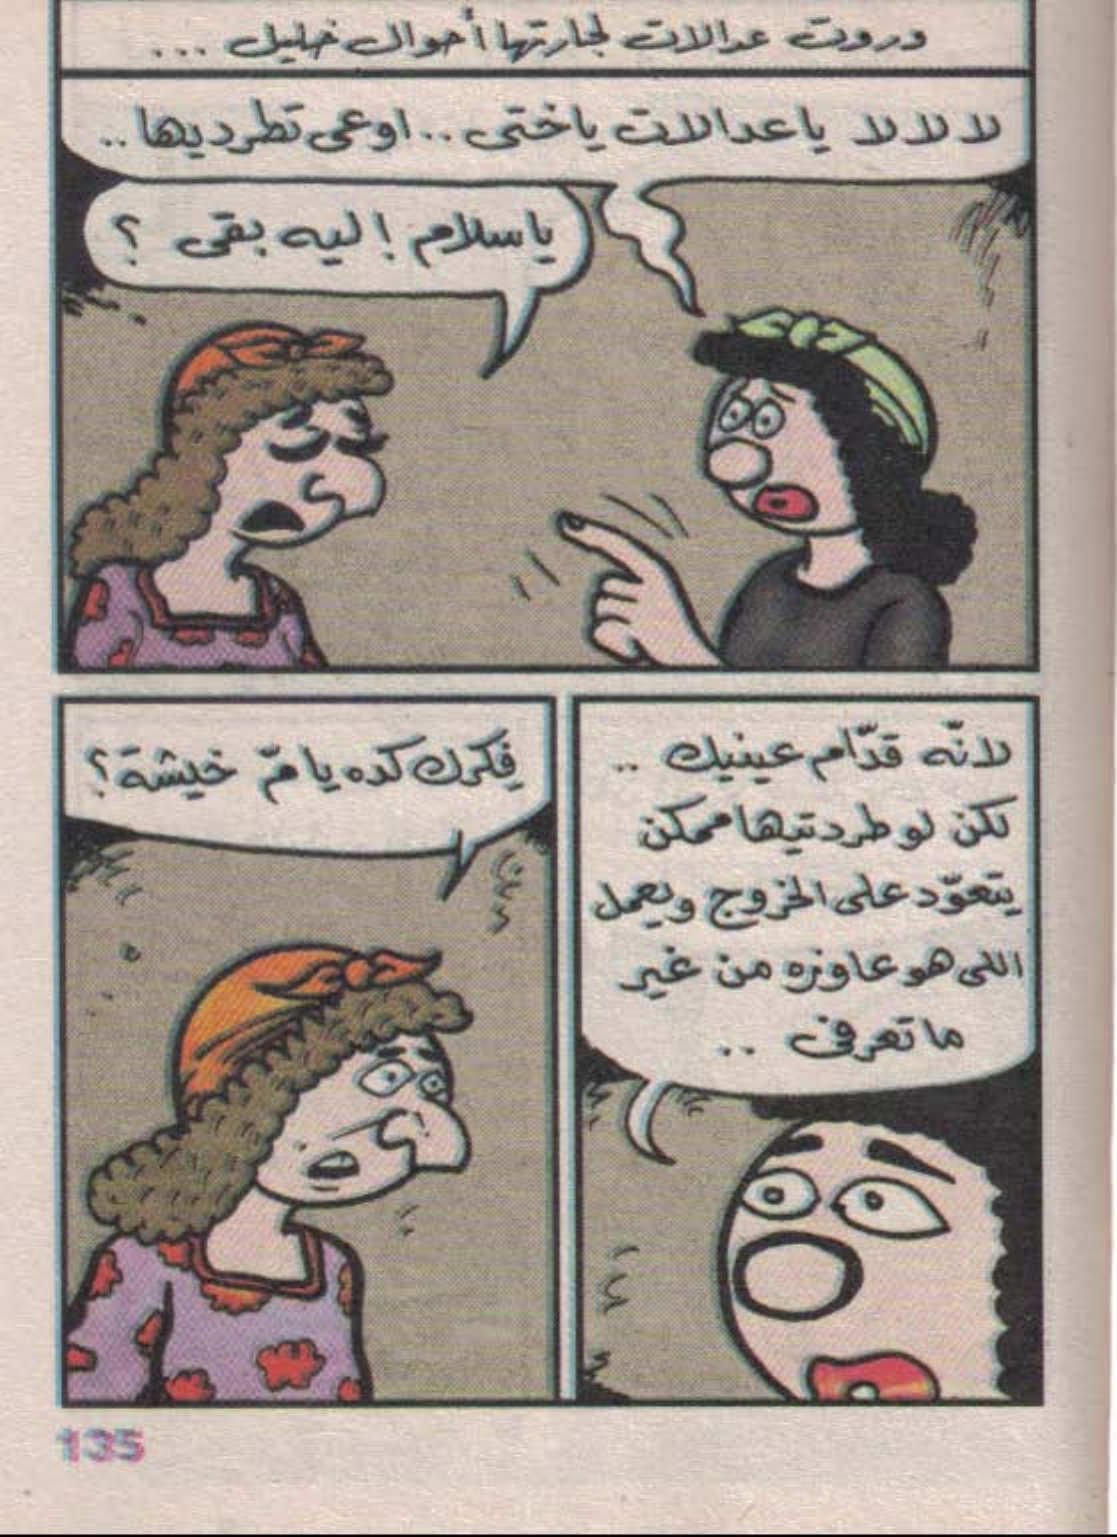 وروت عدالات لجارتها أحوال خليل ...
لا لا لا ياعدالات ياختى .. اوعى تطرديها ..
ياسلام ! ليه بقى ؟
لانّه قدّام عينيك ..
لكن لو طردتيها ممكن
يتعوّد على الخروج ويعمل
اللى هو عاوزه من غير
ما تعرفى ..
فِكرك كده يا مّ خيشة ؟
135